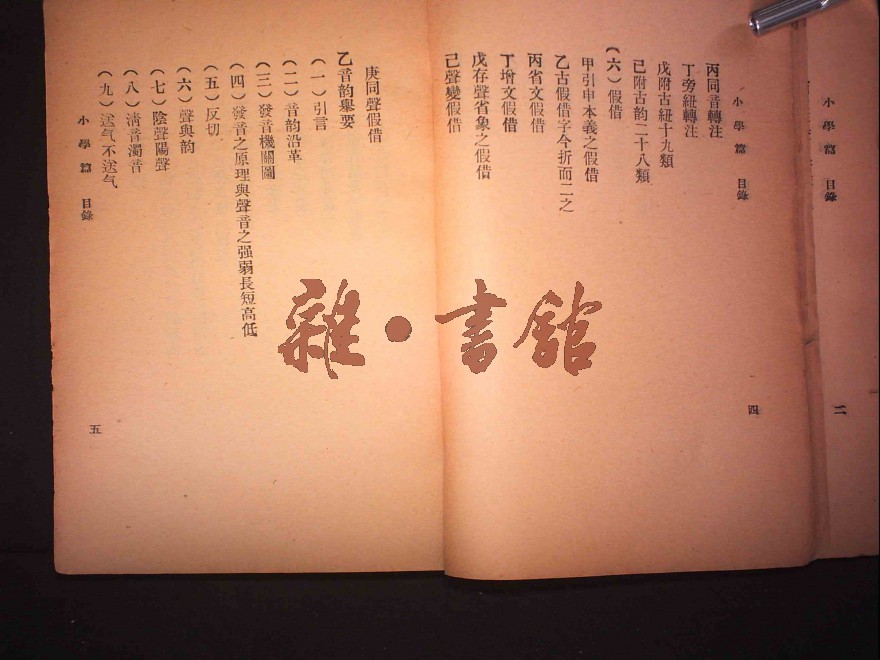 小學篇 目錄
二
小學篇 目錄
四
丙同音轉注
丁旁紐轉注
戊附古紐十九類
己附古韵二十八類
(六)假借
甲引申本義之假借
乙古假借字今折而二之
丙省文假借
丁增文假借
戊存聲省象之假借
己聲變假借
庚同聲假借
乙音韵舉要
(一)引言
(二)音韵沿革
(三)發音機關圖
(四)發音之原理與聲音之强弱長短高低
(五)反切
(六)聲與韵
(七)陰聲陽聲
(八)淸音濁音
(九)送气不送气
小學篇 目錄
五
雜·書館